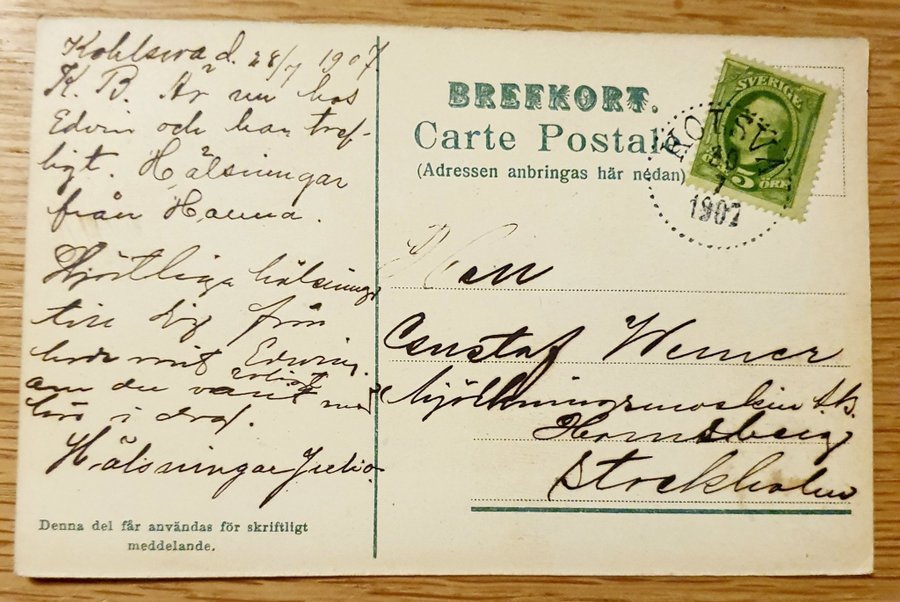 Kohlswa d. 28/7 1907.
K. B. Är nu hos
Edvin och har tref-
ligt. Hälsningar
från Hanna.
Hjärtliga hälsningar
till dig från
Edwin.
om du varit med
här i dag.
Hälsningar
Denna del får användas för skriftligt
meddelande.
BREFKORT.
Carte Postale
(Adressen anbringas här nedan)
SVERIGE
5 ÖRE
KOLSVA
30
7
1907
Herr
Gustaf Werner
Mjölkningsmaskin A.B.
Hornsberg
Stockholm